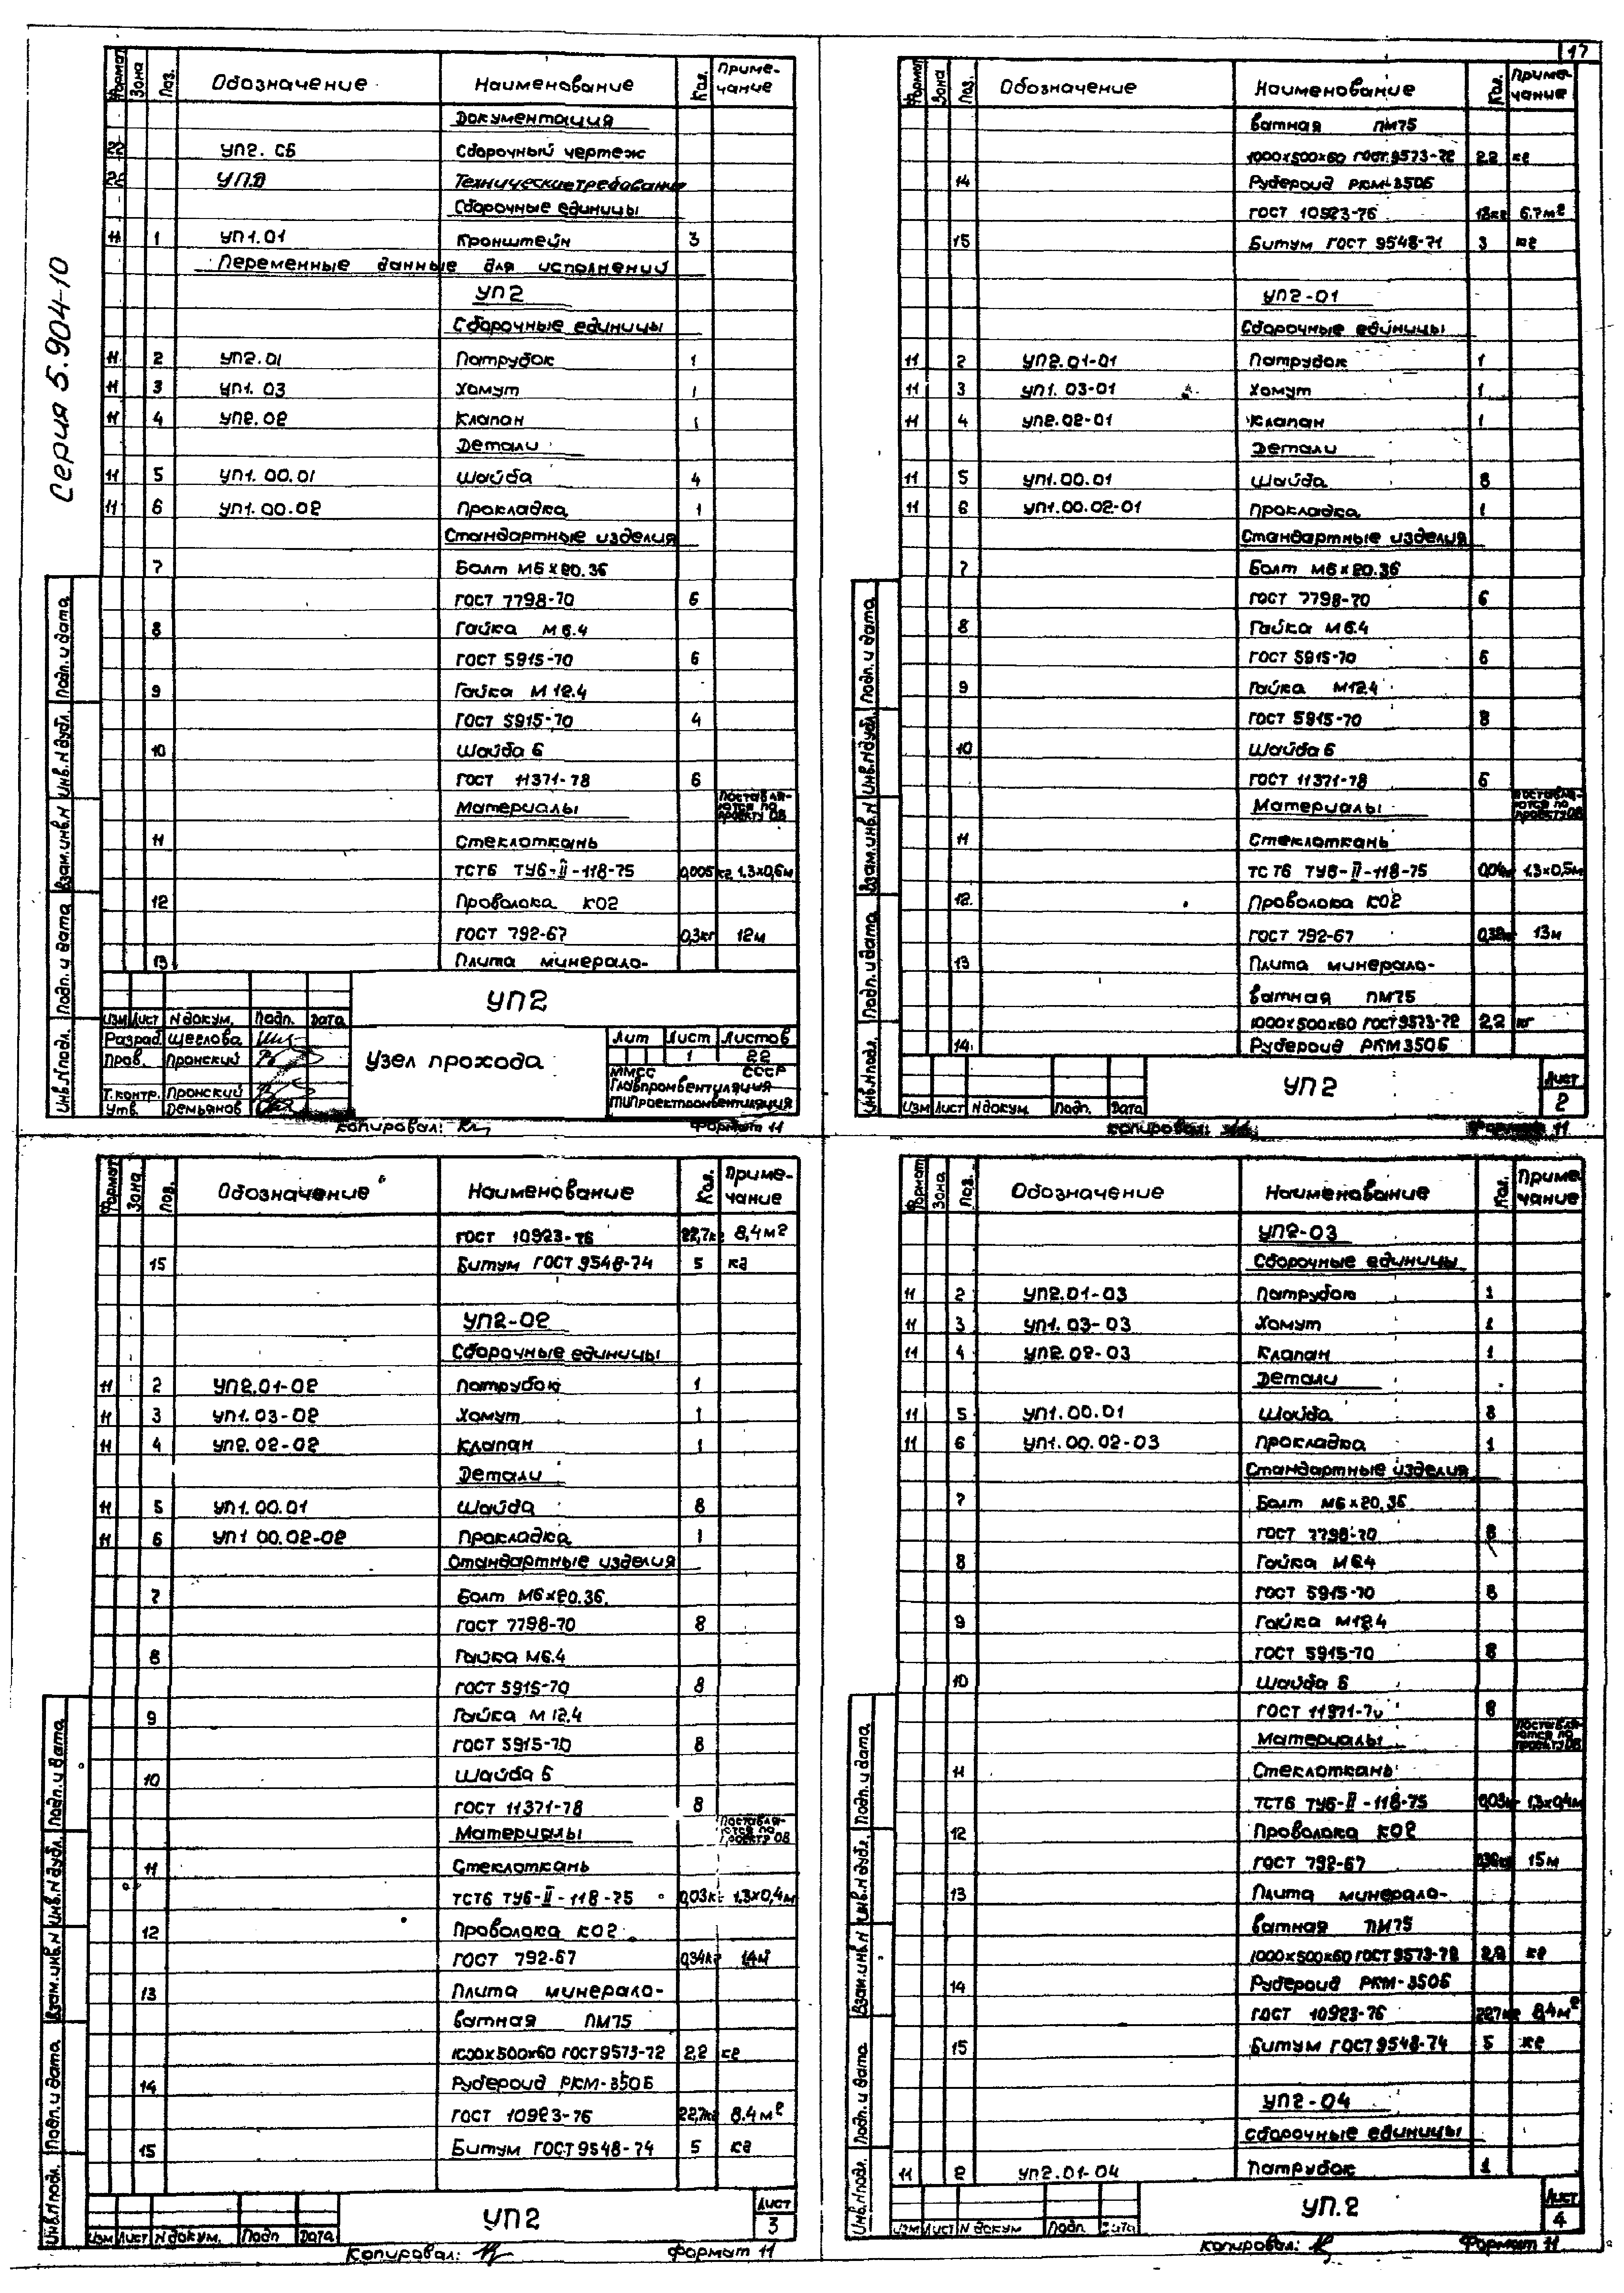 Серия 5.904-10
17
Формат Зона Поз. Обозначение Наименование Кол. Приме-
чание
Документация
22 УП2. СБ Сборочный чертеж
22 УП.Д Технические требования
Сборочные единицы
11 1 УП1.01 Кронштейн 3
Переменные данные для исполнений
УП2
Сборочные единицы
11 2 УП2.01 Патрубок 1
11 3 УП1.03 Хомут 1
11 4 УП2.02 Клапан 1
Детали
11 5 УП1.00.01 Шайба 4
11 6 УП1.00.02 Прокладка 1
Стандартные изделия
7 Болт М6×20.36
ГОСТ 7798-70 6
8 Гайка М6.4
ГОСТ 5915-70 6
9 Гайка М12.4
ГОСТ 5915-70 4
10 Шайба 6
ГОСТ 11371-78 6
Материалы Поставля-
ются по
проекту ОВ
11 Стеклоткань
ТСТ6 ТУ6-II-118-75 0,005 кг 1,3×0,6м
12 Проволока КО2
ГОСТ 792-67 0,3кг 12м
13 Плита минерало-
УП2
Изм Лист N докум. Подп. Дата
Разраб. Щеглова
Пров. Пронский
Т.контр. Пронский
Утв. Демьянов
Узел прохода
Лит Лист Листов
1 22
ММСС СССР
Главпромвентиляция
ГПИПроектпромвентиляция
Инв.Nподл. Подп. и дата Взам.инв.N Инв.N дубл. Подп. и дата
Копировал: Формат 11
Формат Зона Поз. Обозначение Наименование Кол. Приме-
чание
ватная ПМ75
1000×500×60 ГОСТ 9573-72 2,2 кг
14 Рубероид РКМ-350Б
ГОСТ 10923-76 18кг 6,7м²
15 Битум ГОСТ 9548-74 3 кг
УП2-01
Сборочные единицы
11 2 УП2.01-01 Патрубок 1
11 3 УП1.03-01 Хомут 1
11 4 УП2.02-01 Клапан 1
Детали
11 5 УП1.00.01 Шайба 8
11 6 УП1.00.02-01 Прокладка 1
Стандартные изделия
7 Болт М6×20.36
ГОСТ 7798-70 6
8 Гайка М6.4
ГОСТ 5915-70 6
9 Гайка М12.4
ГОСТ 5915-70 8
10 Шайба 6
ГОСТ 11371-78 6
Материалы Поставля-
ются по
проекту ОВ
11 Стеклоткань
ТСТ6 ТУ6-II-118-75 0,04кг 1,3×0,5м
12 Проволока КО2
ГОСТ 792-67 13м
13 Плита минерало-
ватная ПМ75
1000×500×60 ГОСТ 9573-72 2,2 кг
14 Рубероид РКМ350Б
УП2
Лист
2
Изм Лист N докум. Подп. Дата
Инв.Nподл. Подп. и дата Взам.инв.N Инв.N дубл. Подп. и дата
Копировал: Формат 11
Формат Зона Поз. Обозначение Наименование Кол. Приме-
чание
ГОСТ 10923-76 22,7кг 8,4м²
15 Битум ГОСТ 9548-74 5 кг
УП2-02
Сборочные единицы
11 2 УП2.01-02 Патрубок 1
11 3 УП1.03-02 Хомут 1
11 4 УП2.02-02 Клапан 1
Детали
11 5 УП1.00.01 Шайба 8
11 6 УП1 00.02-02 Прокладка 1
Стандартные изделия
7 Болт М6×20.36.
ГОСТ 7798-70 8
8 Гайка М6.4
ГОСТ 5915-70 8
9 Гайка М12.4
ГОСТ 5915-70 8
10 Шайба 6
ГОСТ 11371-78 8
Материалы Поставля-
ются по
проекту ОВ
11 Стеклоткань
ТСТ6 ТУ6-II-118-75 0,03кг 1,3×0,4м
12 Проволока КО2
ГОСТ 792-67 0,34кг 14м
13 Плита минерало-
ватная ПМ75
1000×500×60 ГОСТ 9573-72 2,2 кг
14 Рубероид РКМ-350Б
ГОСТ 10923-76 22,7кг 8.4м²
15 Битум ГОСТ 9548-74 5 кг
УП2
Лист
3
Изм Лист N докум. Подп Дата
Инв.Nподл. Подп. и дата Взам.инв.N Инв.N дубл. Подп. и дата
Копировал: Формат 11
Формат Зона Поз. Обозначение Наименование Кол. Приме
чание
УП2-03
Сборочные единицы
11 2 УП2.01-03 Патрубок 1
11 3 УП1.03-03 Хомут 1
11 4 УП2.02-03 Клапан 1
Детали
11 5 УП1.00.01 Шайба 8
11 6 УП1.00.02-03 Прокладка 1
Стандартные изделия
7 Болт М6×20.36
ГОСТ 7798-70 8
8 Гайка М6.4
ГОСТ 5915-70 8
9 Гайка М12.4
ГОСТ 5915-70 8
10 Шайба 6
ГОСТ 8
Материалы Поставля-
ются по
проекту ОВ
11 Стеклоткань
ТСТ6 ТУ6-II-118-75 0,03кг 1,3×0,4м
12 Проволока КО2
ГОСТ 792-67 15м
13 Плита минерало-
ватная ПМ75
1000×500×60 ГОСТ 9573-72 2,2 кг
14 Рубероид РКМ-350Б
ГОСТ 10923-76 22,7кг 8,4м²
15 Битум ГОСТ 9548-74 5 кг
УП2-04
Сборочные единицы
11 2 УП2.01-04 Патрубок 1
УП.2
Лист
4
Изм Лист N докум Подп. Дата
Инв.Nподл. Подп. и дата Взам.инв.N Инв.N дубл. Подп. и дата
Копировал: Формат 11